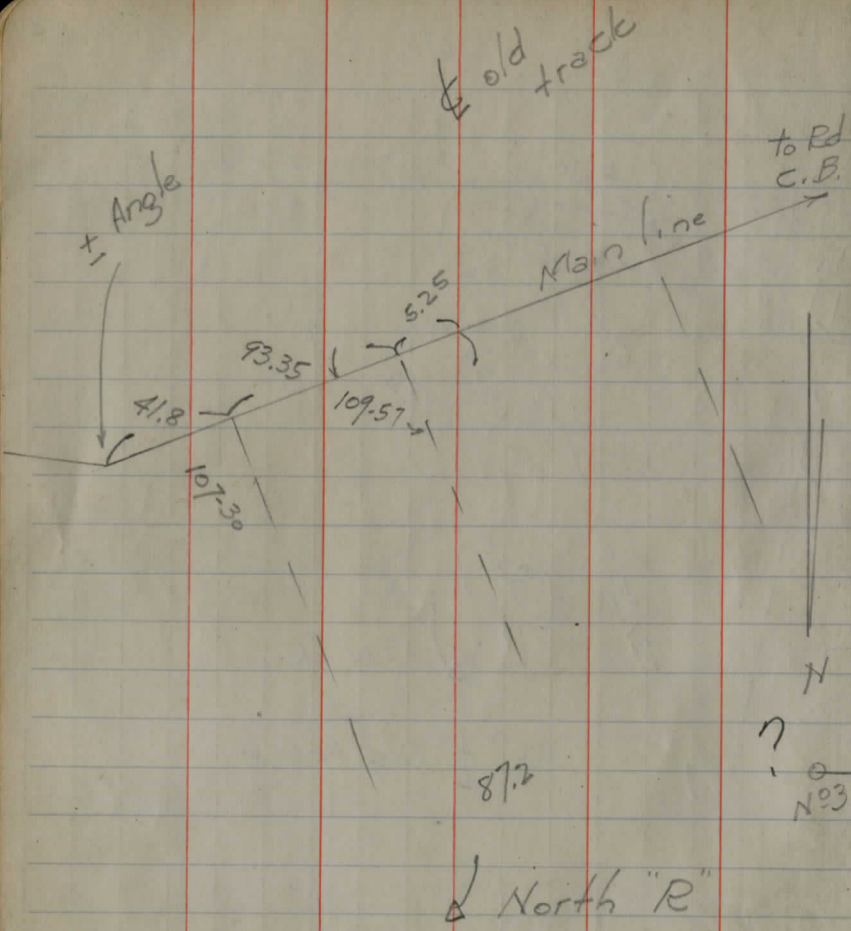 ℄ old
track
to Rd
C.B.
x, Angle
Main line
5.25
93.35
109.57
41.8
107.30
N
?
87.2
Nº3
North "R"